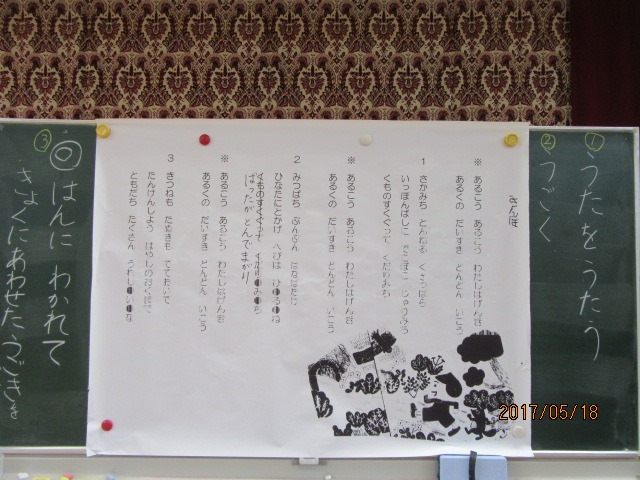 ① うたをうたう
② うごく
さんぽ
※ あるこう あるこう わたしはげんき
あるくの だいすき どんどん いこう
1 さかみち トンネル くさっぱら
いっぽんばしに でこぼこ じゃりみち
くものすくぐって くだりみち
※ あるこう あるこう わたしはげんき
あるくの だいすき どんどん いこう
2 みつばち ぶんぶん はなばたけ
ひなたにとかげ へびは ひるね
ばったがとんで まがり
※ あるこう あるこう わたしはげんき
あるくの だいすき どんどん いこう
3 きつねも たぬきも でておいで
たんけんしよう はやしのおくまで
ともだち たくさん うれしいな
③
◎ はんに わかれて
きょくにあわせたうごきを
2017/05/18